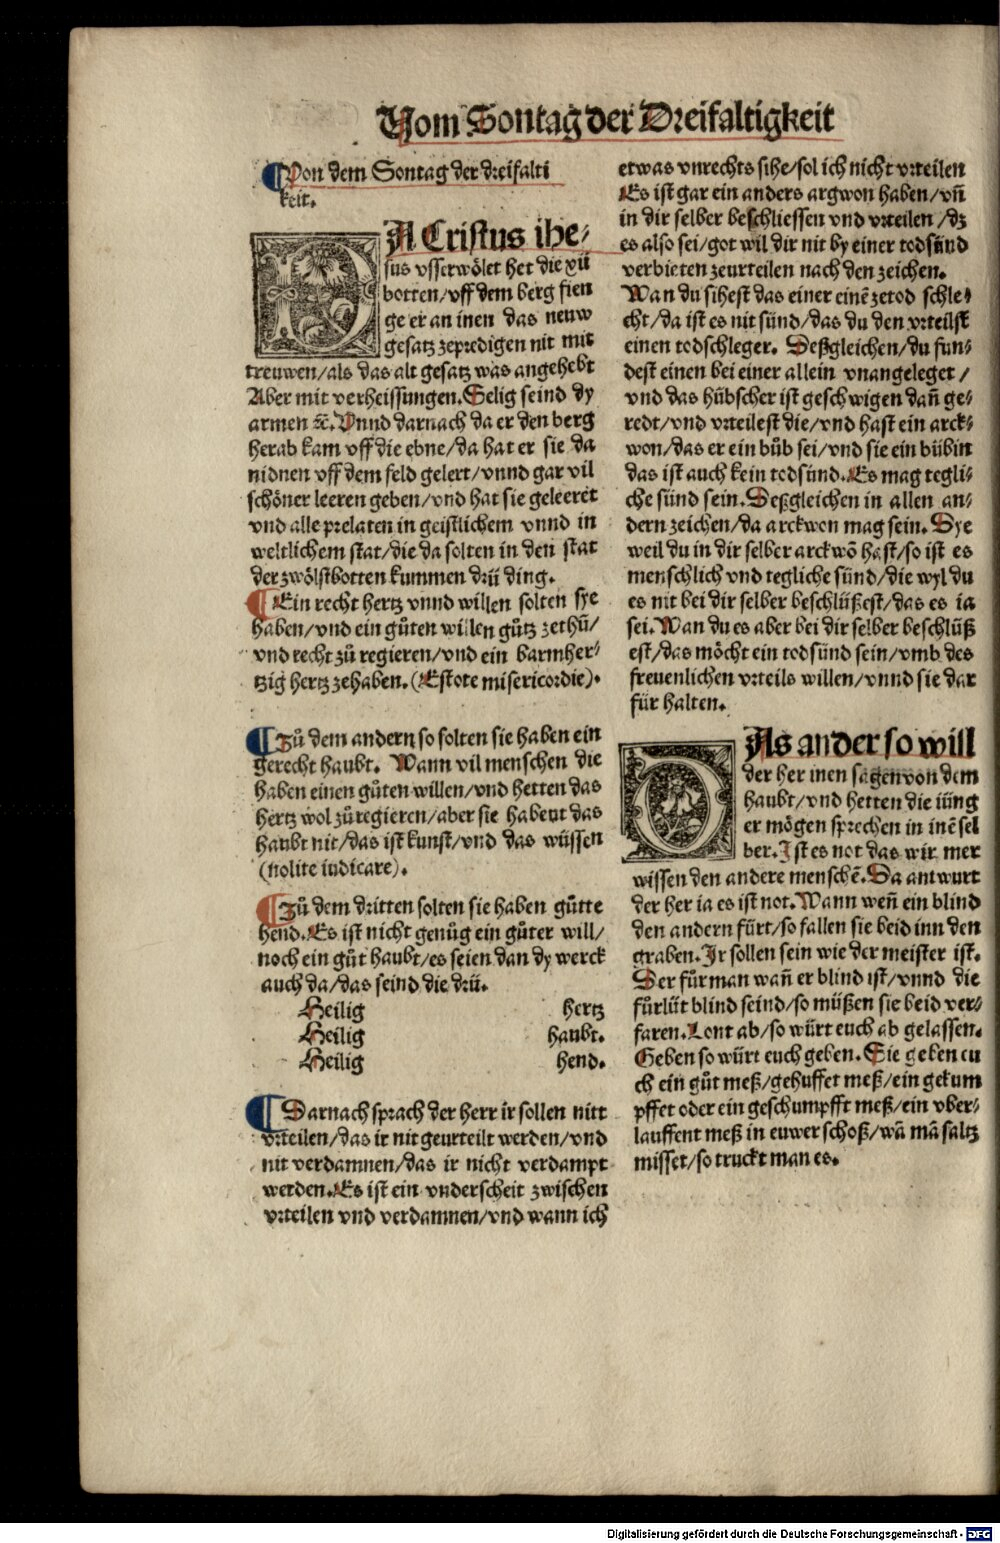 Vom Sontag der Dreifaltigkeit
¶ Von dem Sontag der dreifalti
keit.
DA Cristus ihe⸗
sus vsserwoͤlet het die xii
botten/vff dem berg fien
ge er an inen das neuw
gesatz zepredigen nit mit
treuwen/als das alt gesatz was angehebt
Aber mit verheissungen. Selig seind dy
armen ⁊c. Vnnd darnach da er den berg
herab kam vff die ebne/da hat er sie da
nidnen vff dem feld gelert/vnnd gar vil
schoͤner leeren geben/vnd hat sie geleeret
vnd alle prelaten in geistlichem vnnd in
weltlichem stat/die da solten in den stat
der zwoͤlfbotten kummen drü ding.
¶ Ein recht hertz vnnd willen solten sye
haben/vnd ein guͤten willen guͤtz zethuͤ/
vnd recht zuͤ regieren/vnd ein barmher⸗
tzig hertz zehaben. (Estote misericordie).
¶ Zuͤ dem andern so solten sie haben ein
gerecht haubt. Wann vil menschen die
haben einen guͤten willen/vnd hetten das
hertz wol zuͤ regieren/aber sie habent das
haubt nit/das ist kunst/vnd das wüssen
(nolite iudicare).
¶ Zuͤ dem dritten solten sie haben guͤtte
hend. Es ist nicht genuͤg ein guͤter will/
noch ein guͤt haubt/es seien dan dy werck
auch da/das seind die drü.
Heilig hertz
Heilig haubt.
Heilig hend.
¶ Darnach sprach der herr ir sollen nitt
vrteilen/das ir nit geurteilt werden/vnd
nit verdamnen/das ir nicht verdampt
werden. Es ist ein vnderscheit zwischen
vrteilen vnd verdamnen/vnd wann ich
etwas vnrechts sihe/sol ich nicht vrteilen
Es ist gar ein anders argwon haben/vñ
in dir selber beschliessen vnd vrteilen/dz
es also sei/got wil dir nit by einer todsünd
verbieten zeurteilen nach den zeichen.
Wan du sihest das einer einē zetod schle⸗
cht/da ist es nit sünd/das du den vrteilst
einen todschleger. Deßgleichen/du fun⸗
dest einen bei einer allein vnangeleget/
vnd das hübscher ist geschwigen dañ ge⸗
redt/vnd vrteilest die/vnd hast ein arck⸗
won/das er ein buͤb sei/vnd sie ein bübin
das ist auch kein todsünd. Es mag tegli⸗
che sünd sein. Deßgleichen in allen an⸗
dern zeichen/da arckwon mag sein. Dye
weil du in dir selber arckwō hast/so ist es
menschlich vnd tegliche sünd/die wyl du
es nit bei dir selber beschlüßest/das es ia
sei. Wan du es aber bei dir selber beschlüß
est/das moͤcht ein todsünd sein/vmb des
freuenlichen vrteils willen/vnnd sie dar
für halten.
DAs ander so will
der her inen sagen von dem
haubt/vnd hetten die iüng
er moͤgen sprechen in inē sel
ber. Ist es not das wir mer
wissen den andere menschē. Da antwurt
der her ia es ist not. Wann weñ ein blind
den andern fürt/so fallen sie beid inn den
graben. Ir sollen sein wie der meister ist.
Der fürman wañ er blind ist/vnnd die
fürlüt blind seind/so müßen sie beid ver⸗
faren. Lont ab/so würt euch ab gelassen.
Geben so würt euch geben. Sie geben eu
ch ein guͤt meß/gehuffet meß/ein gekum
pffet oder ein geschumpfft meß/ein vber⸗
lauffent meß in euwer schoß/wā mā saltz
misset/so truckt man es.
Digitalisierung gefördert durch die Deutsche Forschungsgemeinschaft - DFG